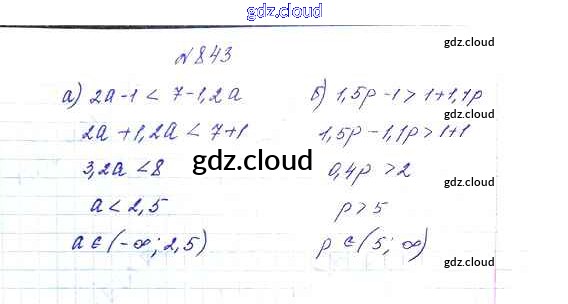 gdz.cloud
№ 843
gdz.cloud
а) 2a-1 < 7-1,2a
2a+1,2a < 7+1
3,2a < 8
a < 2,5
a ∈ (-∞; 2,5)
gdz.cloud
б) 1,5p-1 > 1+1,1p
gdz.cloud
1,5p-1,1p > 1+1
0,4p > 2
gdz.cloud
p > 5
p ∈ (5; ∞)
gdz.cloud
gdz.cloud
gdz.cloud